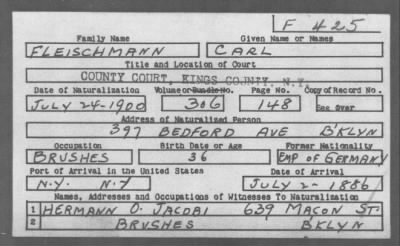 F 425
Family Name Given Name or Names
FLEISCHMANN CARL
Title and Location of Court
COUNTY COURT, KINGS COUNTY, N.Y.
Date of Naturalization Volume or Bundle No. Page No. Copy of Record No.
JULY 24-1900 306 148 See Over
Address of Naturalized Person
397 BEDFORD AVE B'KLYN
Occupation Birth Date or Age Former Nationality
BRUSHES 36 EMP OF GERMANY
Port of Arrival in the United States Date of Arrival
N.Y. N.Y JULY 2-1886
Names, Addresses and Occupations of Witnesses To Naturalization
1 HERMANN O. JACOBI 639 MACON ST.
2 BRUSHES BKLYN